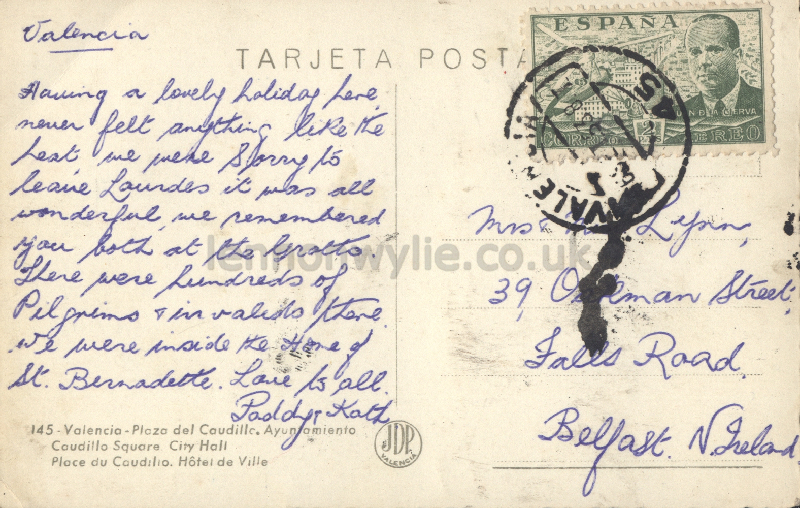 Valencia
TARJETA POSTA
Having a lovely holiday here,
never felt anything like the
heat, we were Sorry to
leave Lourdes it was all
wonderful, we remembered
you both at the Grotto.
There were hundreds of
Pilgrims & invalids there.
We were inside the Home of
St. Bernadette. Love to all.
Paddy & Kath
145 - Valencia - Plaza del Caudillo. Ayuntamiento
Caudillo Square City Hall
Place du Caudillo. Hôtel de Ville
JDP
VALENCIA
ESPAÑA
CIERVA
CORREO
VALENCIA
45
Mrs Lynn,
39 Street,
Falls Road,
Belfast. N. Ireland
lennonwylie.co.uk